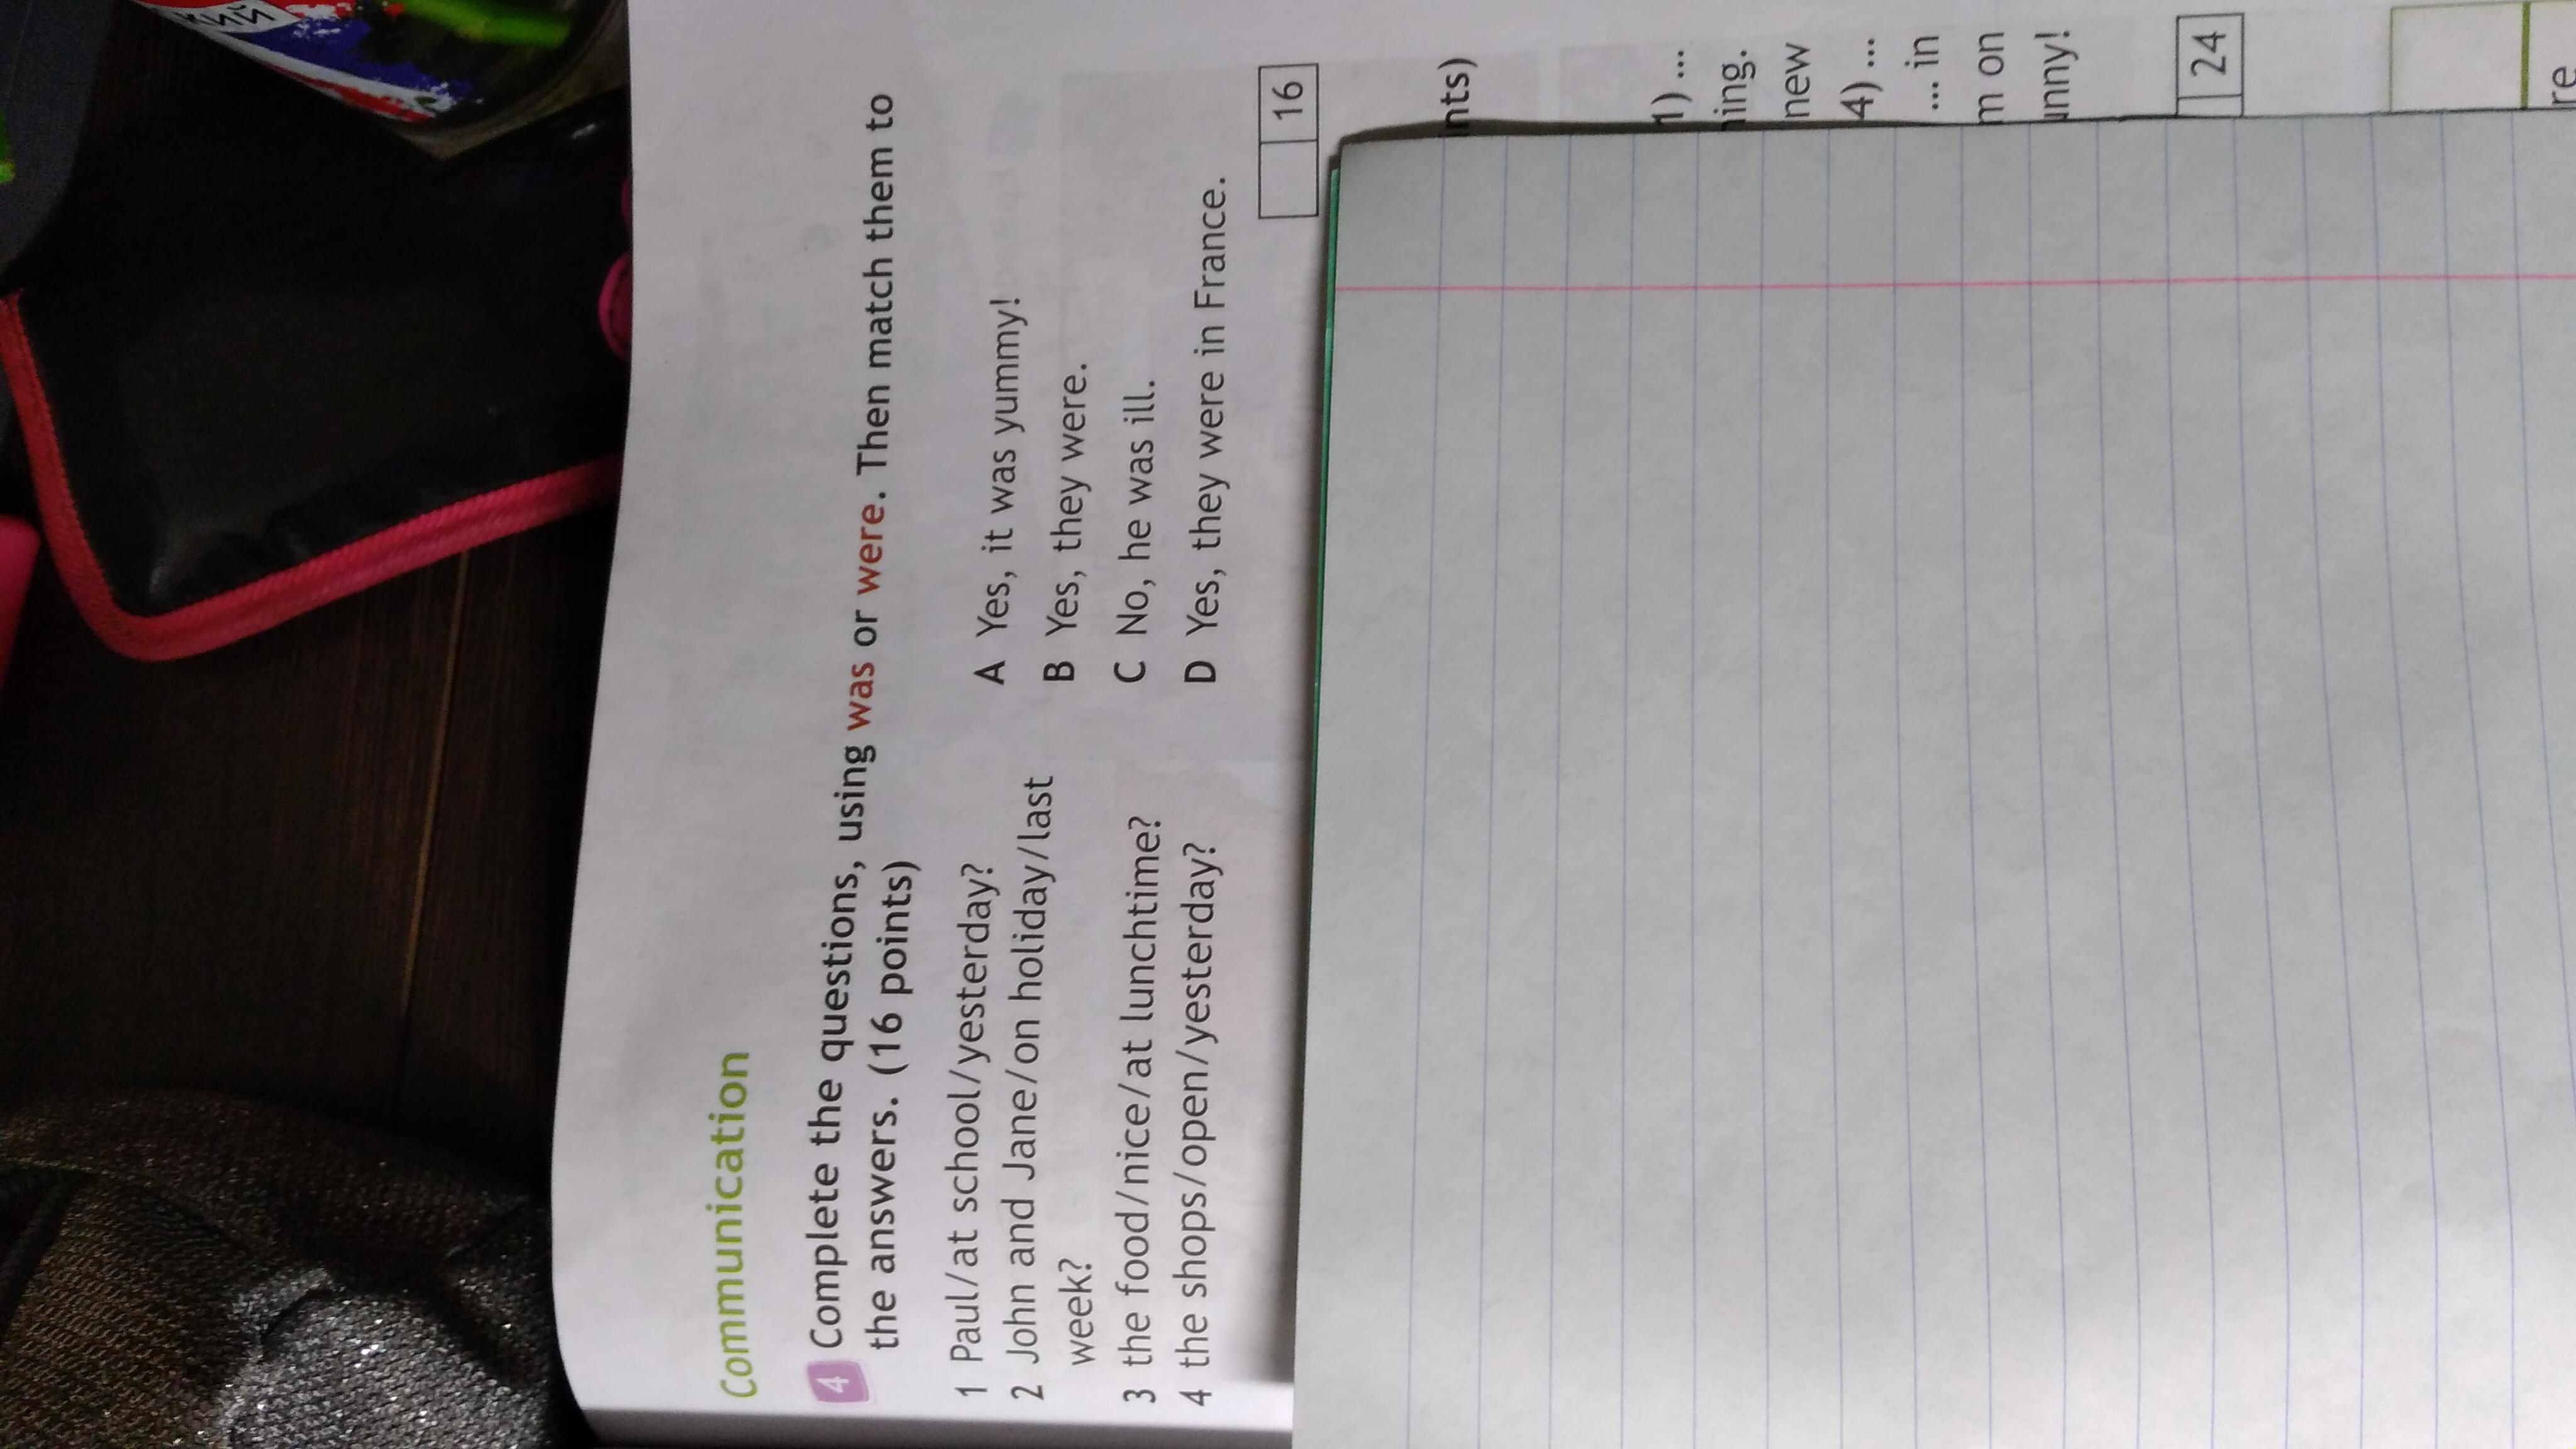 кий
Communication
4 Complete the questions, using was or were. Then match them to
the answers. (16 points)
1 Paul/at school/yesterday?
2 John and Jane/on holiday/last
week?
3 the food/nice/at lunchtime?
4 the shops/open/yesterday?
A Yes, it was yummy!
B Yes, they were.
C No, he was ill.
D Yes, they were in France.
16
nts)
1) ...
ning.
new
4) ...
... in
m on
unny!
24
re